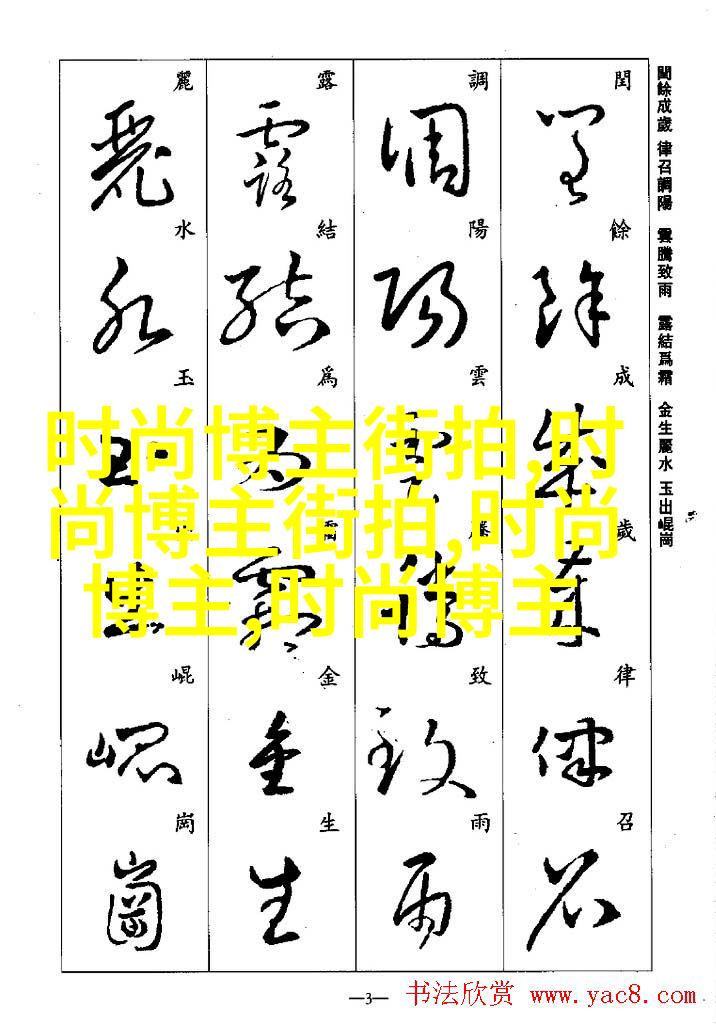 閏餘成歲 律召調陽 雲騰致雨 露結爲霜 金生麗水 玉出崐崗
閏餘成歲律召
調陽雲騰致雨
露結爲霜金生
麗水玉出崐崗
时尚博主街拍,时
尚博主街拍,时尚
博主,时尚博主
—3—
书法欣赏 www.yac8.com